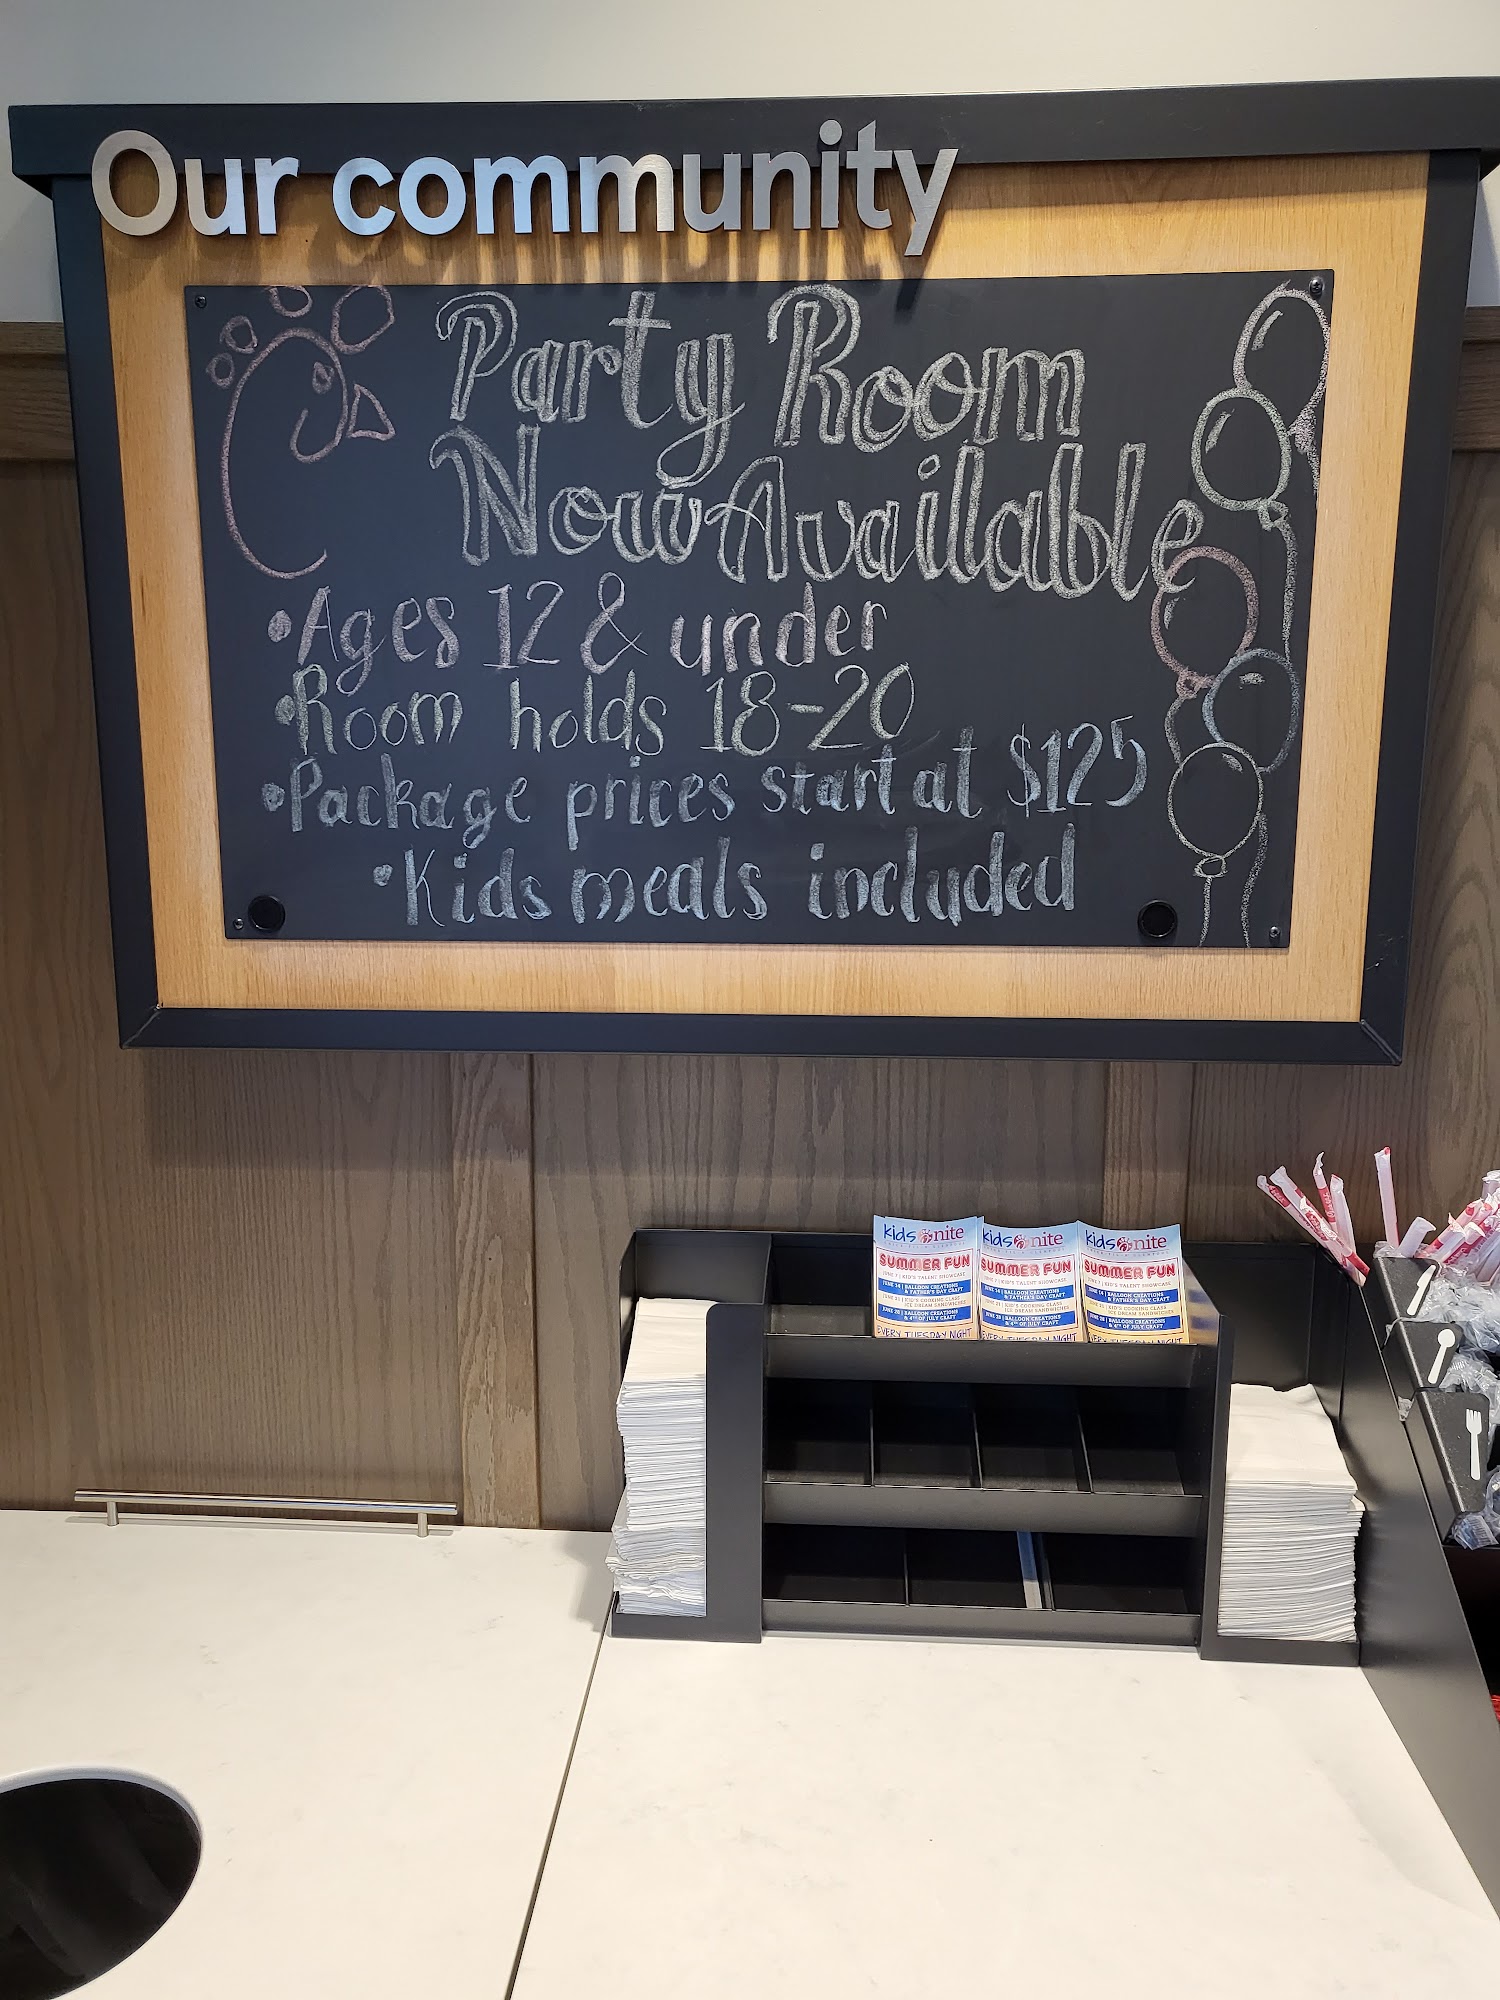 Our community
Party Room
Now Available
• Ages 12 & under
• Room holds 18-20
• Package prices start at $125
• Kids meals included
kids nite
SUMMER FUN
JUNE 7 | KID'S TALENT SHOWCASE
JUNE 14 | BALLOON CREATIONS
& FATHER'S DAY CRAFT
JUNE 21 | KID'S COOKING CLASS
ICE DREAM SANDWICHES
JUNE 28 | BALLOON CREATIONS
& 4TH OF JULY CRAFT
EVERY TUESDAY NIGHT
kids nite
SUMMER FUN
JUNE 7 | KID'S TALENT SHOWCASE
JUNE 14 | BALLOON CREATIONS
& FATHER'S DAY CRAFT
JUNE 21 | KID'S COOKING CLASS
ICE DREAM SANDWICHES
JUNE 28 | BALLOON CREATIONS
& 4TH OF JULY CRAFT
EVERY TUESDAY NIGHT
kids nite
SUMMER FUN
JUNE 7 | KID'S TALENT SHOWCASE
JUNE 14 | BALLOON CREATIONS
& FATHER'S DAY CRAFT
JUNE 21 | KID'S COOKING CLASS
ICE DREAM SANDWICHES
JUNE 28 | BALLOON CREATIONS
& 4TH OF JULY CRAFT
EVERY TUESDAY NIGHT